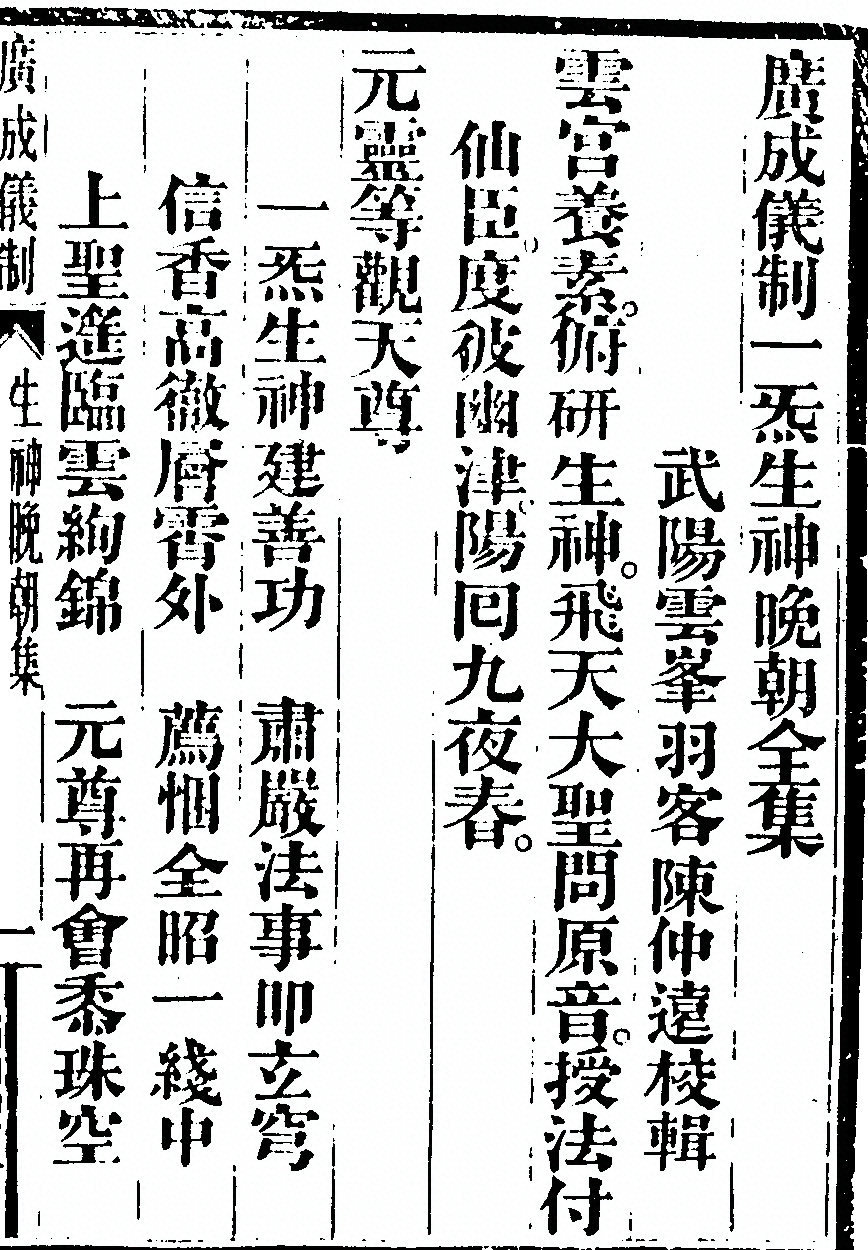 廣成儀制一炁生神晚朝全集
武陽雲峯羽客陳仲遠校輯
雲宮養素。俯研生神。飛天大聖問原音。授法付
仙臣。度破幽津。陽囘九夜春。
元靈等觀天尊
一炁生神建善功　肅嚴法事叩立穹
信香高徹層霄外　薦悃全昭一綫中
上聖遥臨雲絢錦　元尊再會黍珠空
廣成儀制　生神晚朝集　一